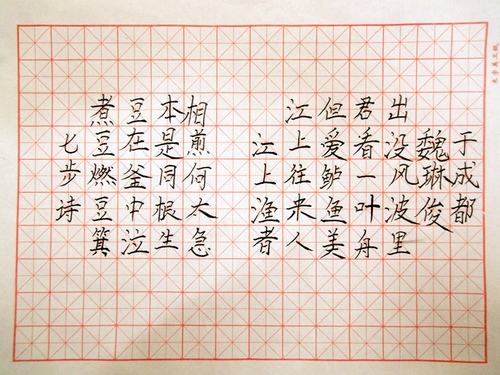 七步诗
煮豆燃豆萁
豆在釜中泣
本是同根生
相煎何太急
江上渔者
江上往来人
但爱鲈鱼美
君看一叶舟
出没风波里
魏琳俊
于成都